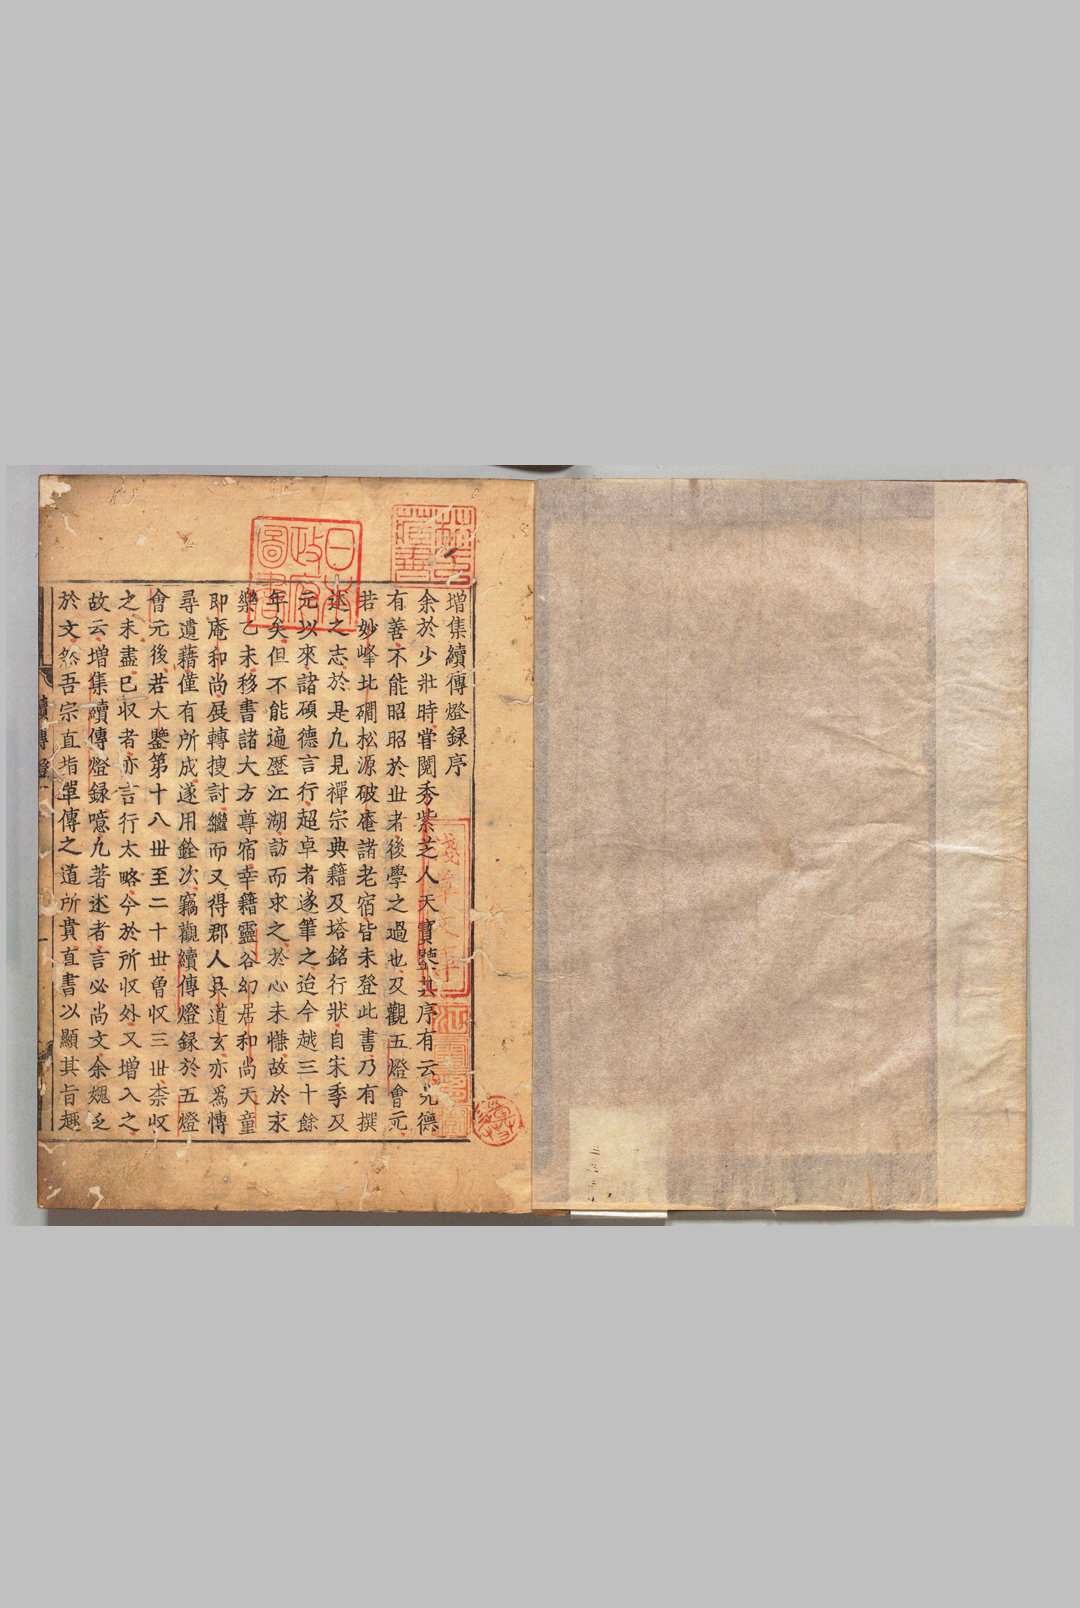 增集續傳燈錄序
余於少壯時甞閱秀紫芝人天寶鑑其序有云先德
有善不能昭昭於丗者後學之過也及觀五燈會元
若妙峰北磵松源破庵諸老宿皆未登此書乃有撰
述之志於是凡見禪宗典籍及塔銘行狀自宋季及
元以來諸碩德言行超卓者遂筆之迨今越三十餘
年矣但不能遍歷江湖訪而求之於心未慊故於永
樂乙未移書諸大方尊宿幸籍靈谷幻居和尚天童
即庵和尚展轉搜討繼而又得郡人具道玄亦爲慱
尋遺藉僅有所成遂用銓次竊觀續傳燈録於五燈
會元後若大鑒第十八丗至二十丗曾収三丗柰収
之未盡已収者亦言行太略今於所収外又增入之
故云增集續傳燈録噫凡著述者言必尚文余媿乏
於文然吾宗直指單傳之道所貴直書以顯其旨趣
續傳燈
日本政府圖書
淺草文庫